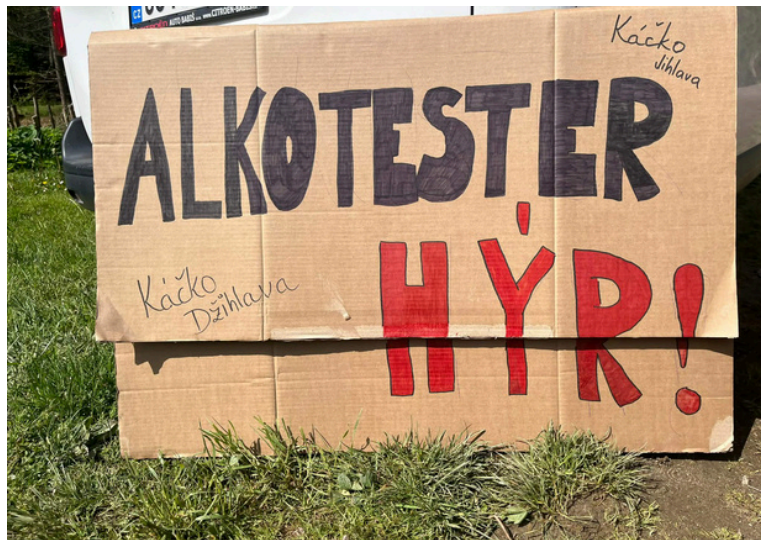 CZ
AUTO BABIŠ s.r.o. www.CITROEN-BABIS.cz
Káčko
Jihlava
ALKOTESTER
Káčko
Džihlava
HÝR!